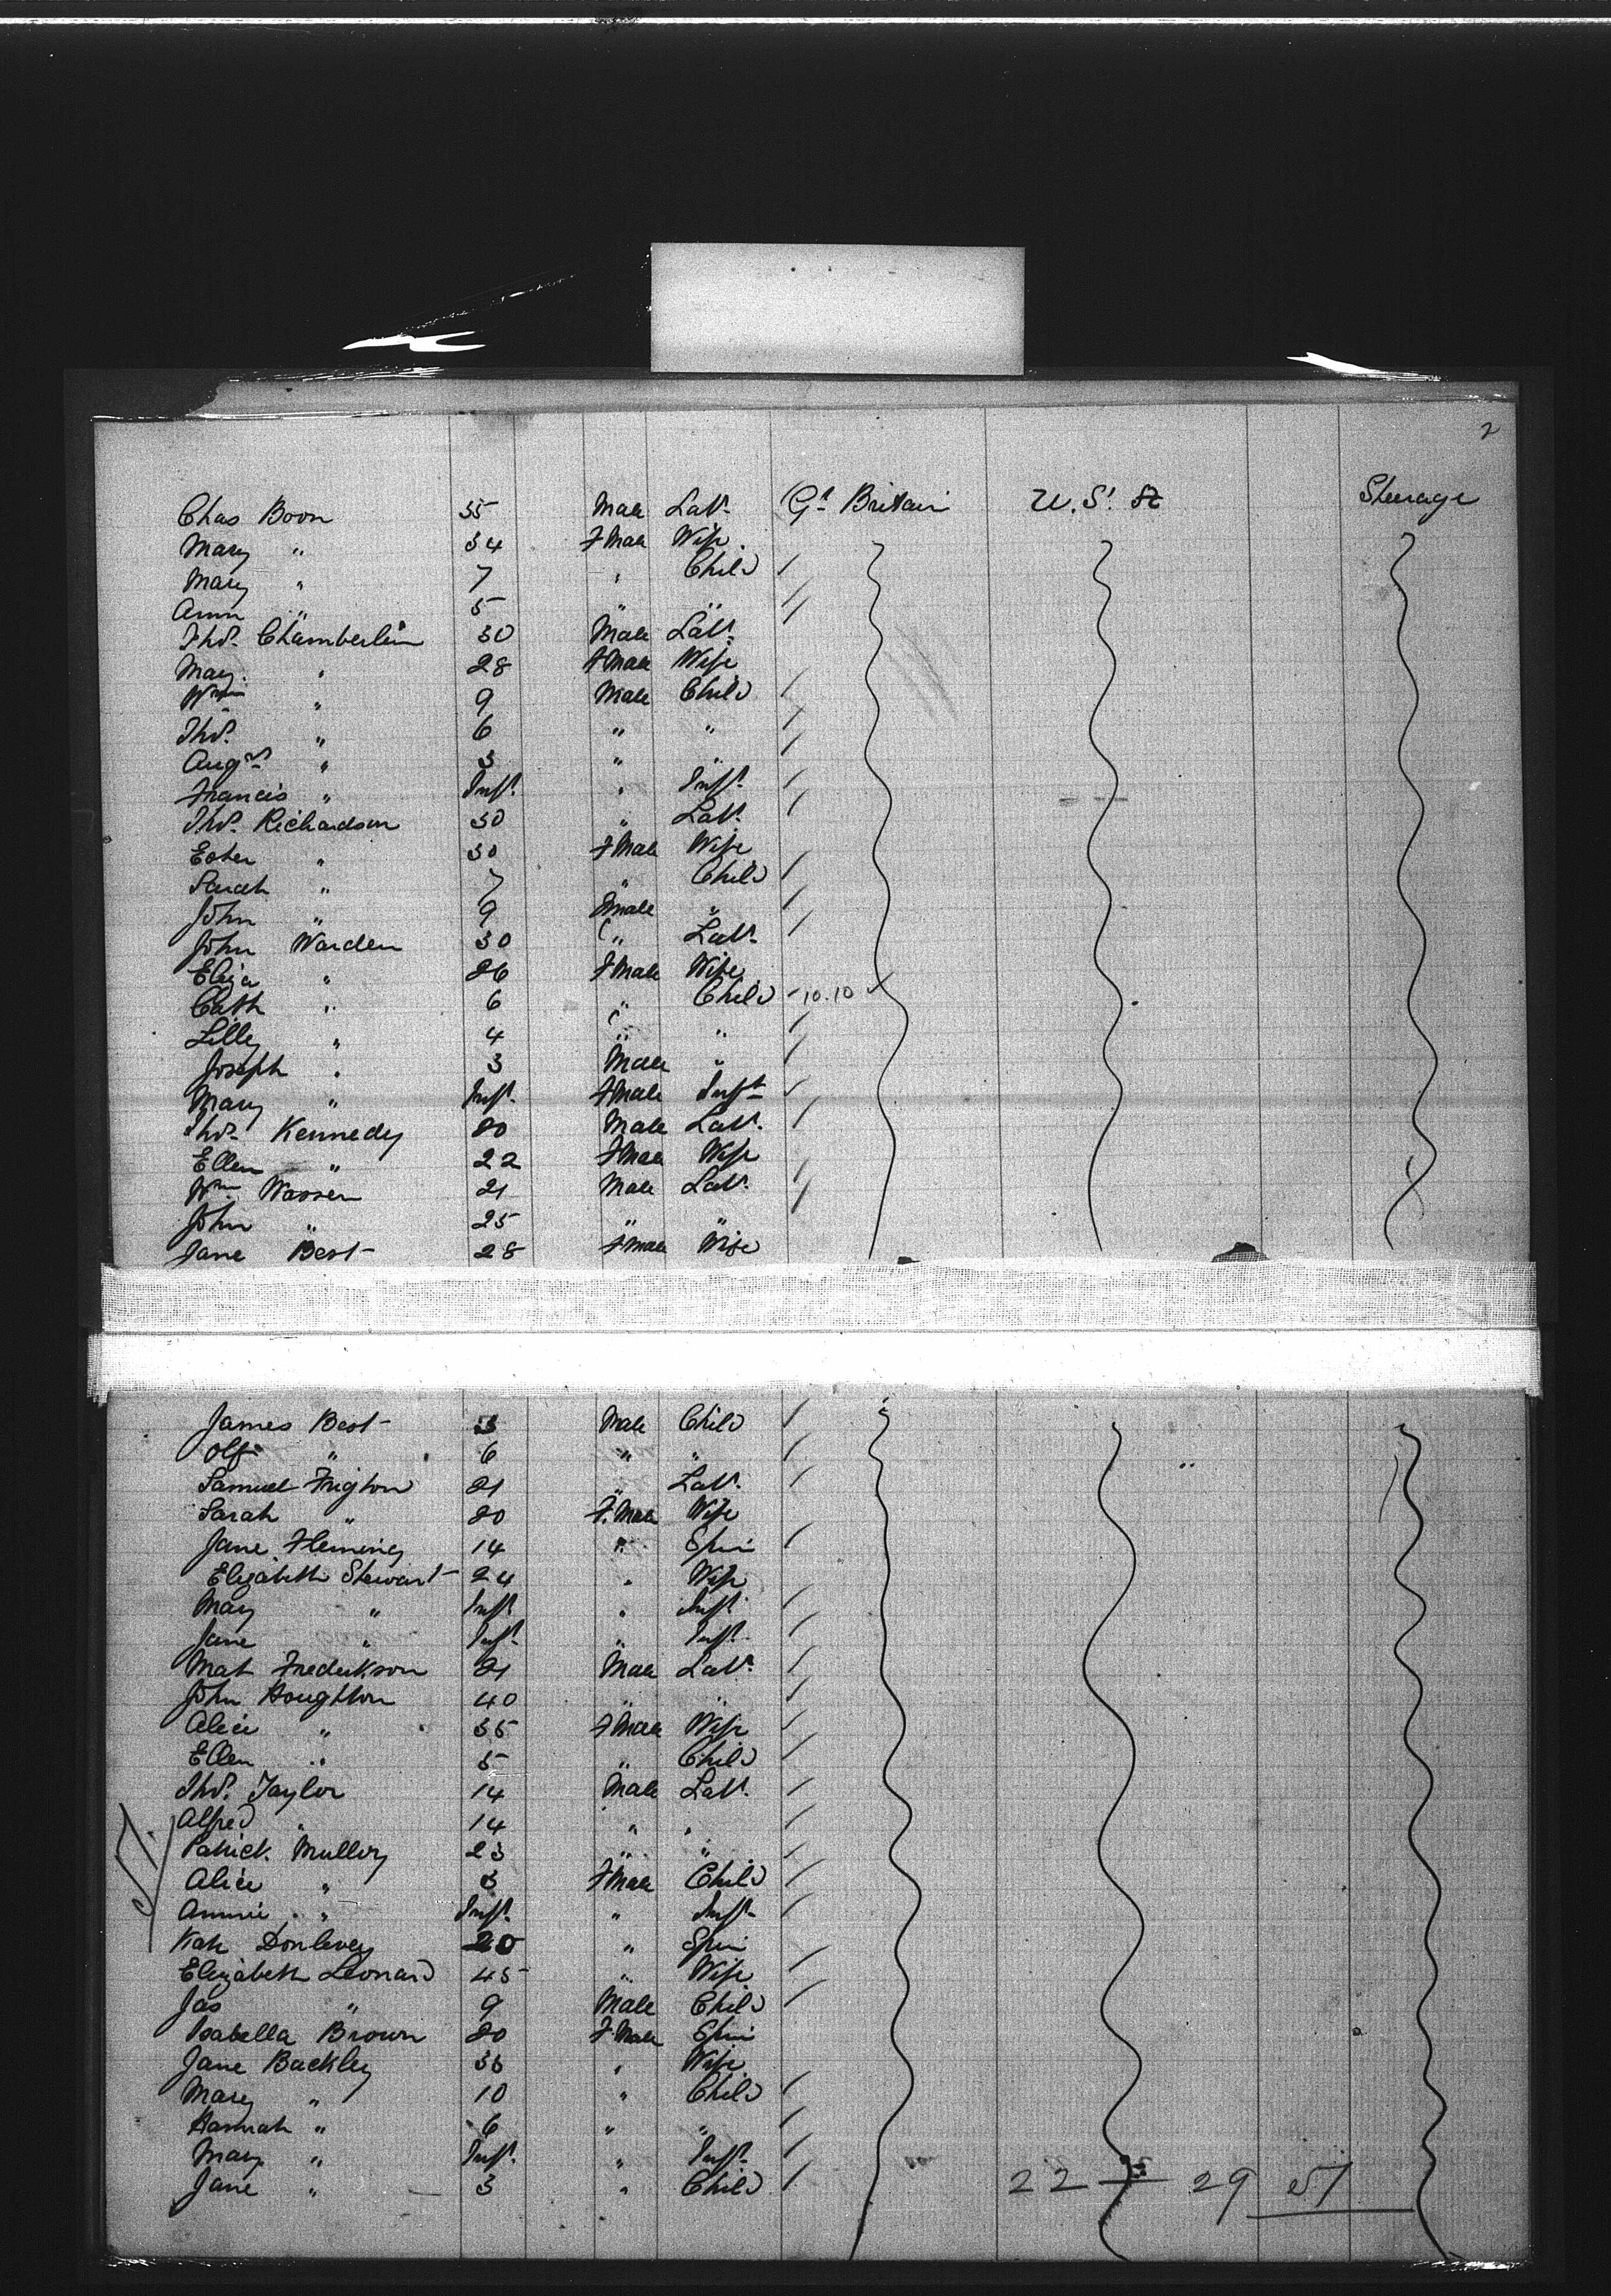 2
Chas Boon 35 Male Labr. Gt Britain U. St. St Steerage
Mary " 34 F Male Wife
Mary " 7 " Child
Ann " 5 " "
Thos. Chamberlin 30 Male Labr.
Mary " 28 F Male Wife
Wm " 9 Male Child
Thos. " 6 " "
Augs " 3 " "
Francis " Inft. " Inft.
Thos. Richardson 30 " Labr.
Ester " 30 F Male Wife
Sarah " 7 " Child
John " 9 Male "
John Warden 30 " Labr.
Eliza " 26 F Male Wife
Cath " 6 " Child 10.10
Lilly " 4 " "
Joseph " 3 Male "
Mary " Inft. F Male Inft
Thos. Kennedy 20 Male Labr.
Ellen " 22 F Male Wife
Wm. Wassen 21 Male Labr.
John " 25 " "
Jane Best 28 F Male Wife
James Best 3 Male Child
" 6 " "
Samuel Frigton 21 " Labr.
Sarah " 20 F. Male Wife
Jane Fleming 14 " Spin
Elizabeth Stewart 24 " Wife
Mary " Inft. " Inft.
Jane " Inft. " Inft.
Mat Fredukson 21 Male Labr.
John Houghton 40 " "
Alice " 35 F Male Wife
Ellen " 5 " Child
Thos. Taylor 14 Male Labr.
Alfred " 14 " "
Patrick Mulloy 23 " "
Alice " 3 F Male Child
Annie " Inft. " Inft.
Kate Donlevey 20 " Spin
Elizabeth Leonard 45 " Wife
Jas " 9 Male Child
Isabella Brown 20 F. Male Spin
Jane Buckley 35 " Wife
Mary " 10 " Child
Hannah " 6 " "
Mary " Inft. " Inft.
Jane " 3 " Child 22 29 51